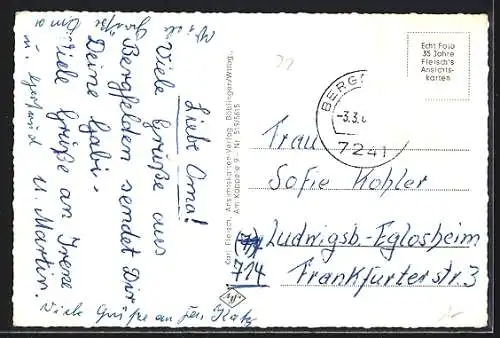 Liebe Oma!
Viele Grüße aus
Bergfelden sendet Dir
Deine Gabi.
Viele Grüße an Irene
u. Martin.
Viele Grüße
u. Gertrud
Viele Grüße an
Karl Fleisch, Ansichtskarten-Verlag, Böblingen/Württ.
Am Käppele 9 - Nr. 519/5615
Echt Foto
35 Jahre
Fleisch's
Ansichts-
karten
BERGF
-3.3.
7241
Frau
Sofie Kohler
Ludwigsb.-Eglosheim
714
Frankfurterstr. 3